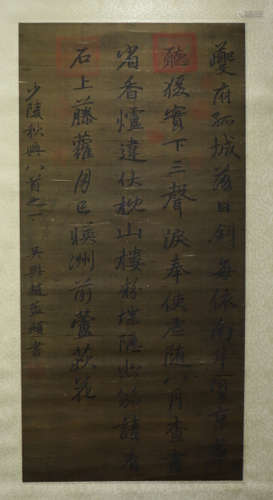 夔府孤城落日斜每依南斗望京華
聽猨實下三聲淚奉使虛隨八月查畫
省香爐違伏枕山樓粉堞隱悲笳請看
石上藤蘿月已暎洲前蘆荻花
少陵秋興八首之一 吳興趙孟頫書